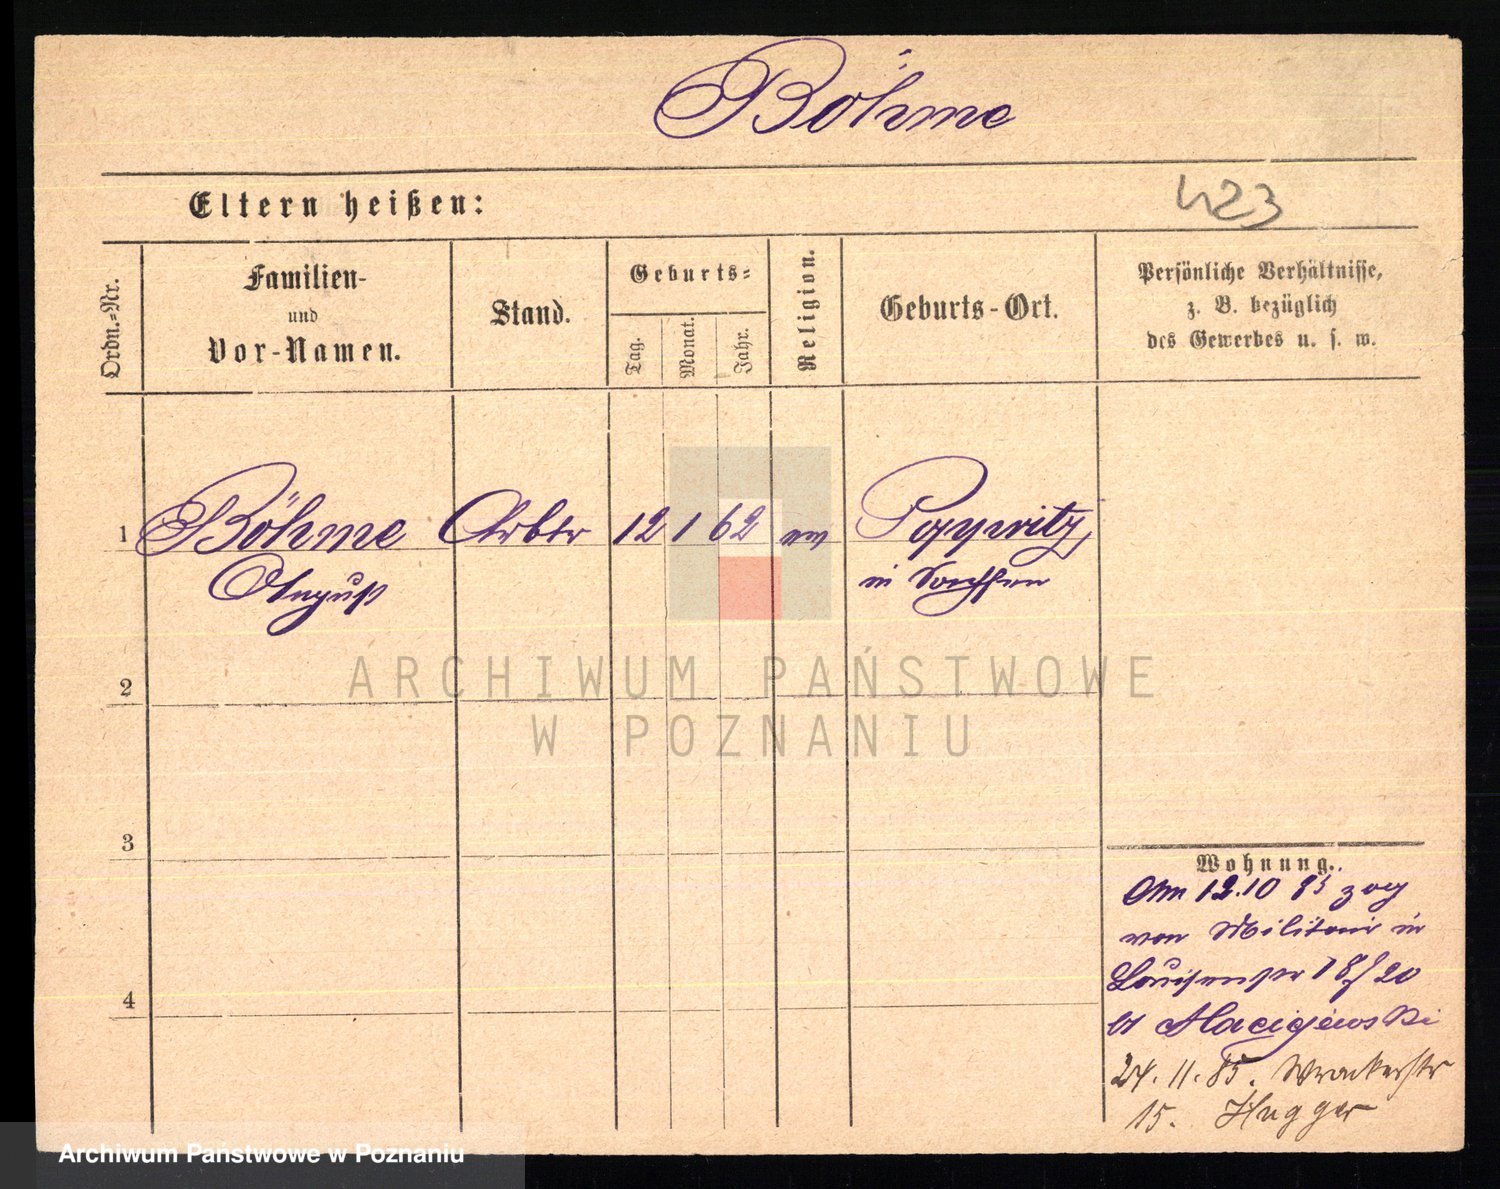 Böhme
Eltern heißen:
423
Ordn.=Nr.
Familien-
und
Vor-Namen.
Stand.
Geburts=
Tag.
Monat.
Jahr.
Religion.
Geburts-Ort.
Persönliche Verhältnisse,
z. B. bezüglich
des Gewerbes u. s. w.
1 Böhme Arbtr 12 1 62 ev Poppwitz,
August in Sachsen
2
ARCHIWUM PAŃSTWOWE
W POZNANIU
3
4
Wohnung.
Am 12.10 85 zog
von Militair in
Louisenstr 18/20
24.11.85. Wronkerstr
15. Hugger
Archiwum Państwowe w Poznaniu